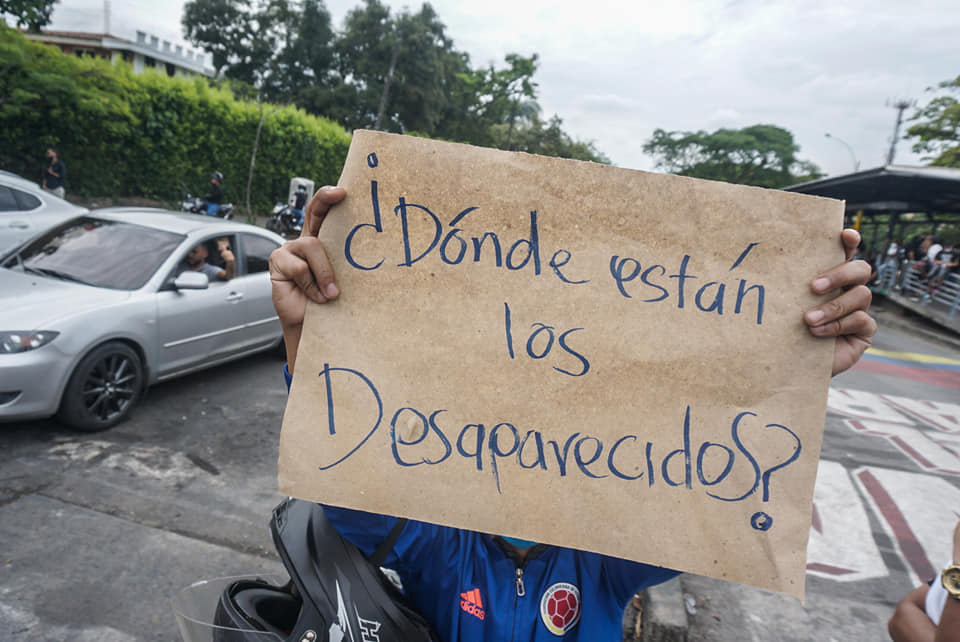 ¿Dónde están
los
Desaparecidos?
adidas